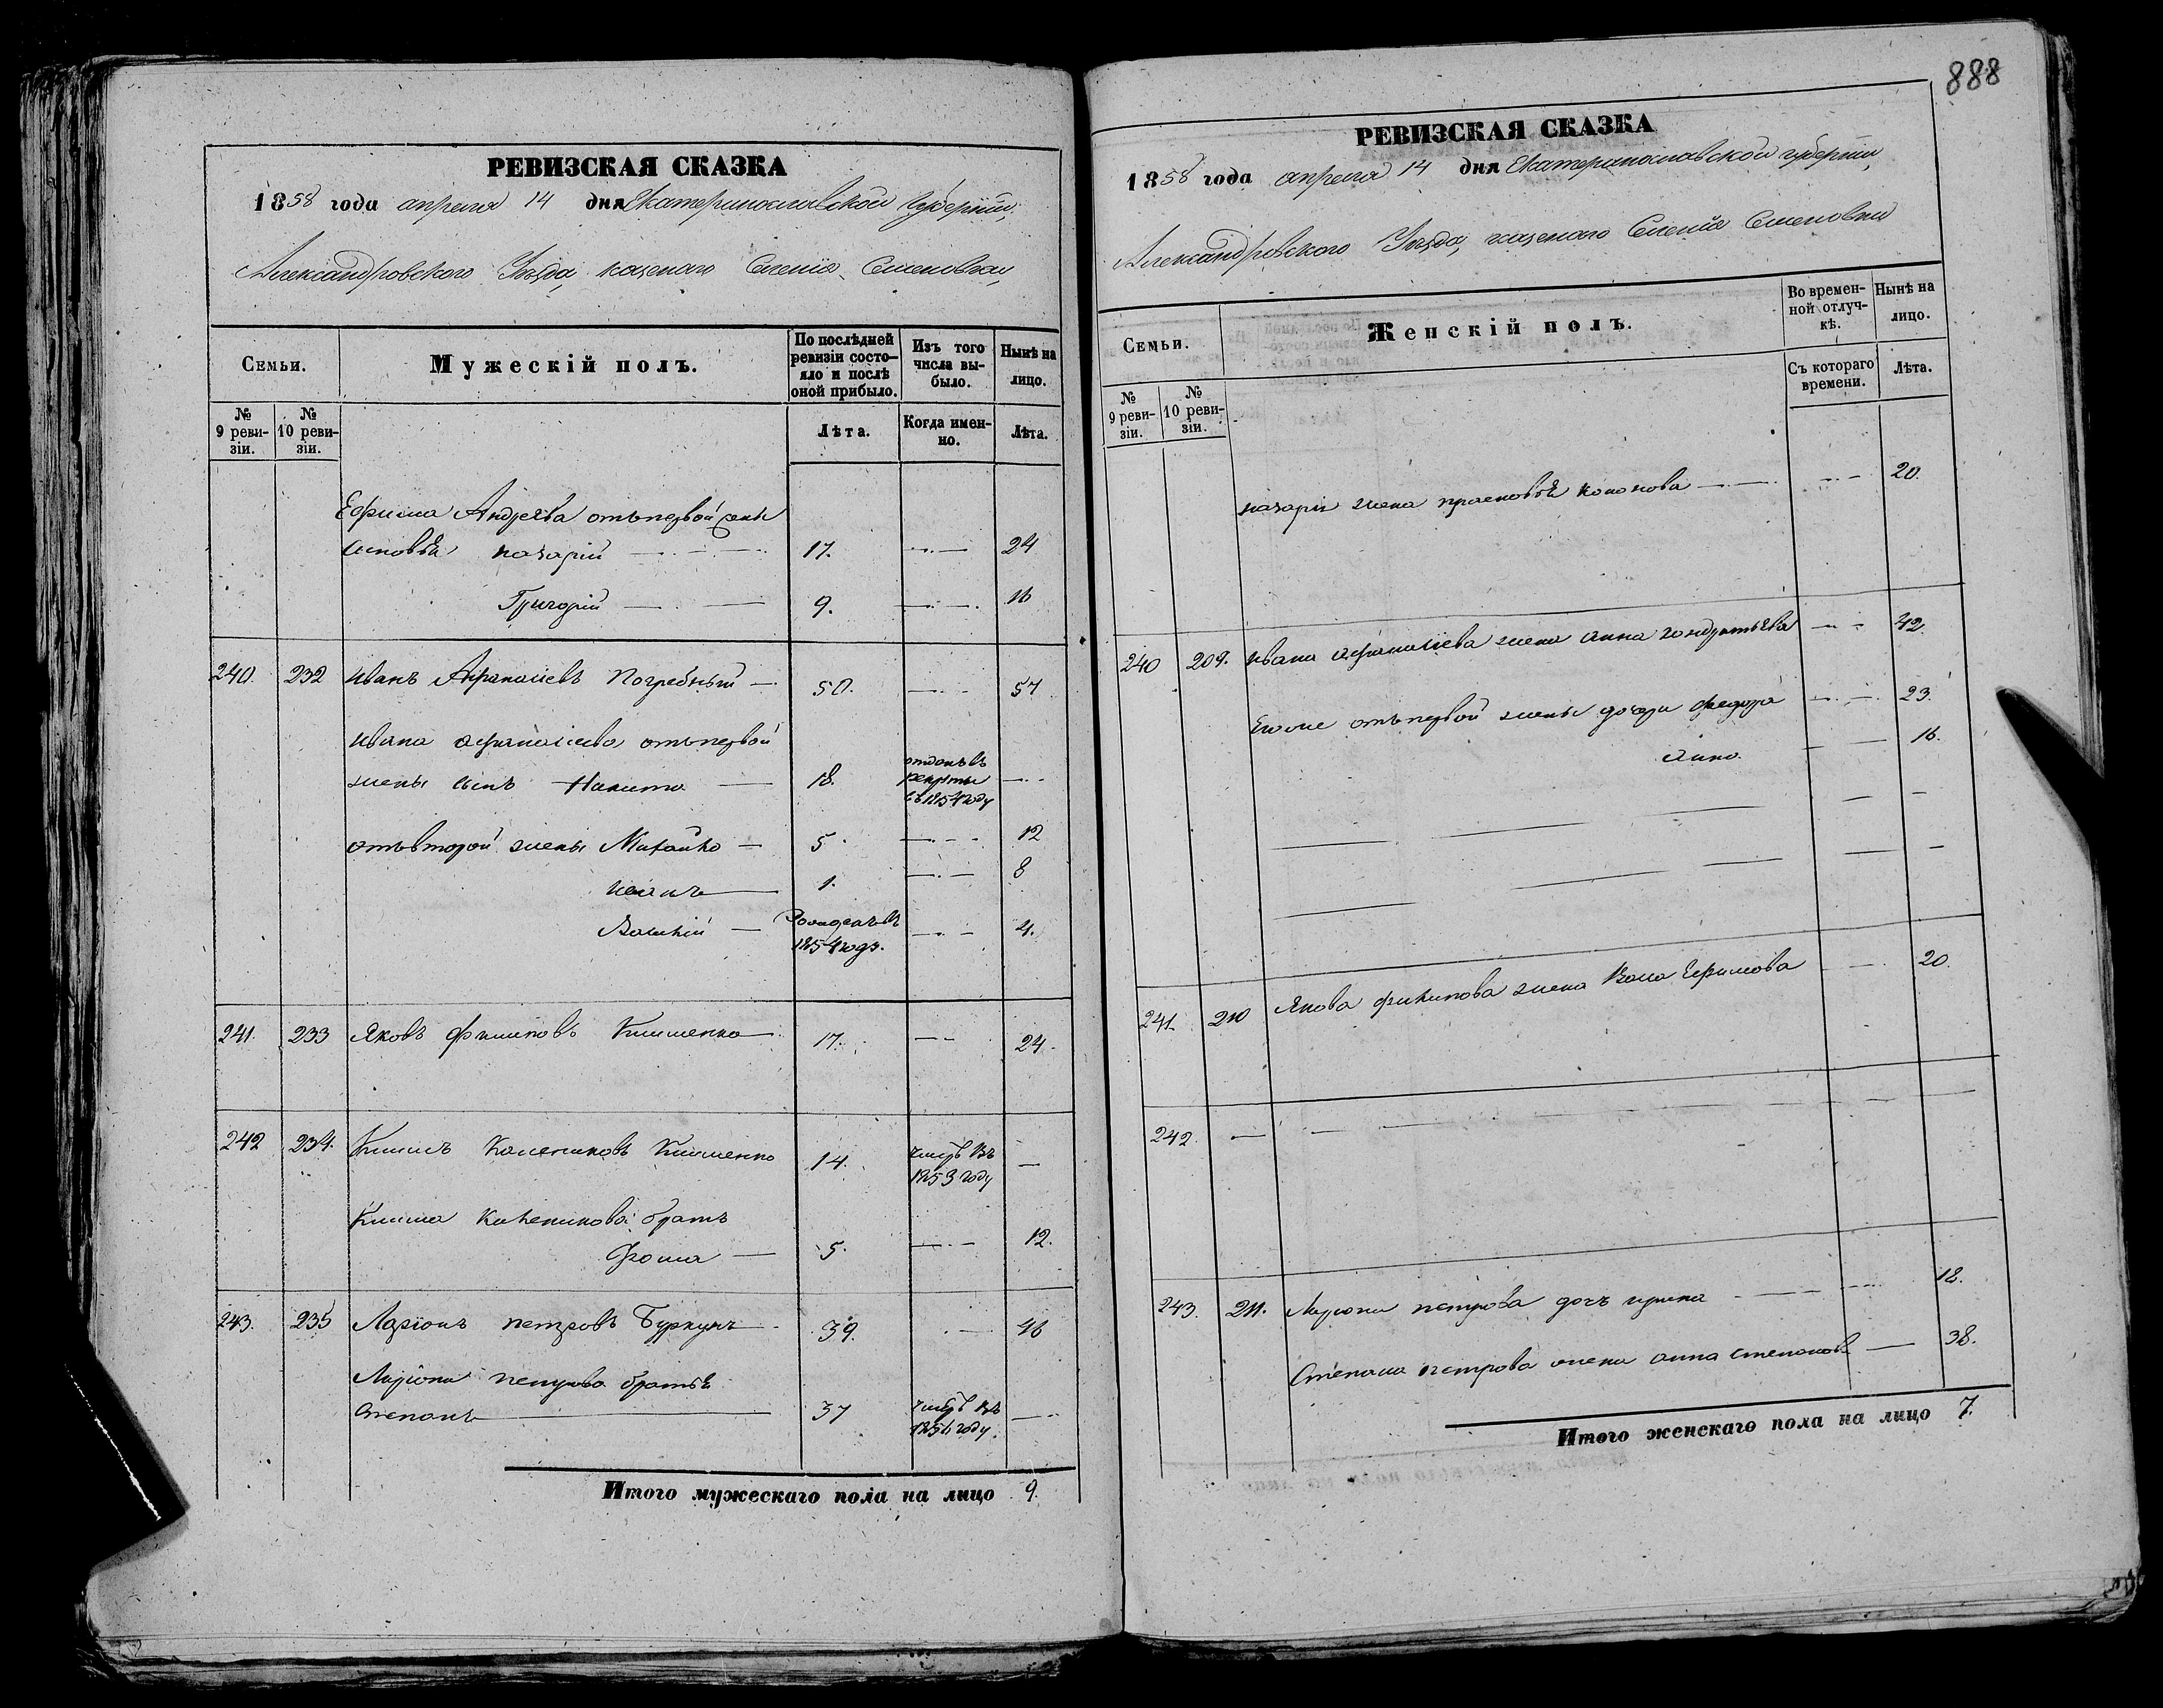 РЕВИЗСКАЯ СКАЗКА
1858 года апреля 14 дня Екатеринославской Губернии,
Александровского Уезда, казенаго Селенiя Семеновки,
Семьи.
Мужескій полъ.
По послѣдней ревизіи состояло и послѣ оной прибыло.
Изъ того числа выбыло.
Нынѣ на лицо.
№ 9 ревизіи.
№ 10 ревизіи.
Лѣта.
Когда именно.
Лѣта.
Ефима Андрѣева отъ первой жены
сыновья назарiй 17. 24
Григорiй 9. 16
240. 232 Иванъ Афанасiевъ Погребный 50. 57
Ивана афанасiева отъ первой
жены сынъ Никита 18. отданъ въ рекруты въ 1854 году
отъ второй жены Михайло 5. 12
иванъ 1. 8
Василiй рожденъ въ 1854 годъ. 4.
241. 233 Яковъ филиповъ Клименко 17. 24
242 234. Климъ Калениковъ Клименко 14. умеръ въ 1853 году
Клима Каленикова братъ
Фома 5. 12.
243. 235 Ларiонъ петровъ Буркунъ 39. 46
Ларiона петрова братья
Степанъ 37 умеръ въ 1856 году.
Итого мужескаго пола на лицо 9.
888
РЕВИЗСКАЯ СКАЗКА
1858 года апреля 14 дня Екатеринославской губернии,
Александровского Уезда, казенаго Селенiя Семеновки
Семьи.
Женскій полъ.
Во временной отлучкѣ.
Нынѣ на лицо.
№ 9 ревизіи.
№ 10 ревизіи.
Съ котораго времени.
Лѣта.
назарiя жена прасковья кононова 20.
240 209. Ивана афанасiева жена анна кондратьева 42.
Егоже отъ первой жены дочери федора 23.
анна. 16.
241. 210 Якова филипова жена Ефимова 20.
242.
243. 211. Ларiона петрова дочъ ирина 18.
Степана петрова жена анна степанова 38.
Итого женскаго пола на лицо 7.